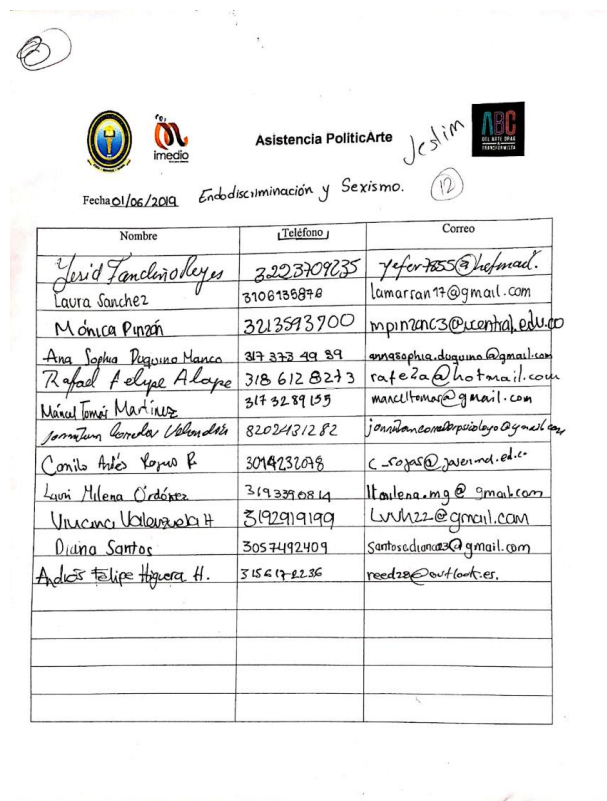 imedio
Asistencia PoliticArte
Jeslim
ABC
DEL ARTE DRAG
TRANSFORMISTA
Fecha 01/06/2019 Endodiscriminación y Sexismo.
12
Nombre Teléfono Correo
Yesid Fandiño Reyes 3223709235 yefer7855@hotmail.
Laura Sanchez 3106135878 lamarran17@gmail.com
Mónica Pinzón 3213593700 mpinzonc3@ucentral.edu.co
Ana Sophia Duquino Manco 317 373 49 89 annasophia.duquino@gmail.com
Rafael Felype Alape 318 612 8273 rafe2a@hotmail.com
Máncel Tomás Martínez 317 3289155 manceltomas@gmail.com
8202431282
Camilo 3014232078 c_rojas@javeriana.ed.c
Laura Milena Ordóñez
Viviana Valenzuela H 3192919199 Lvvh22@gmail.com
Diana Santos 3057492409
Andrés Felipe Higuera H. 315617-2236 reed28@outlook.es.